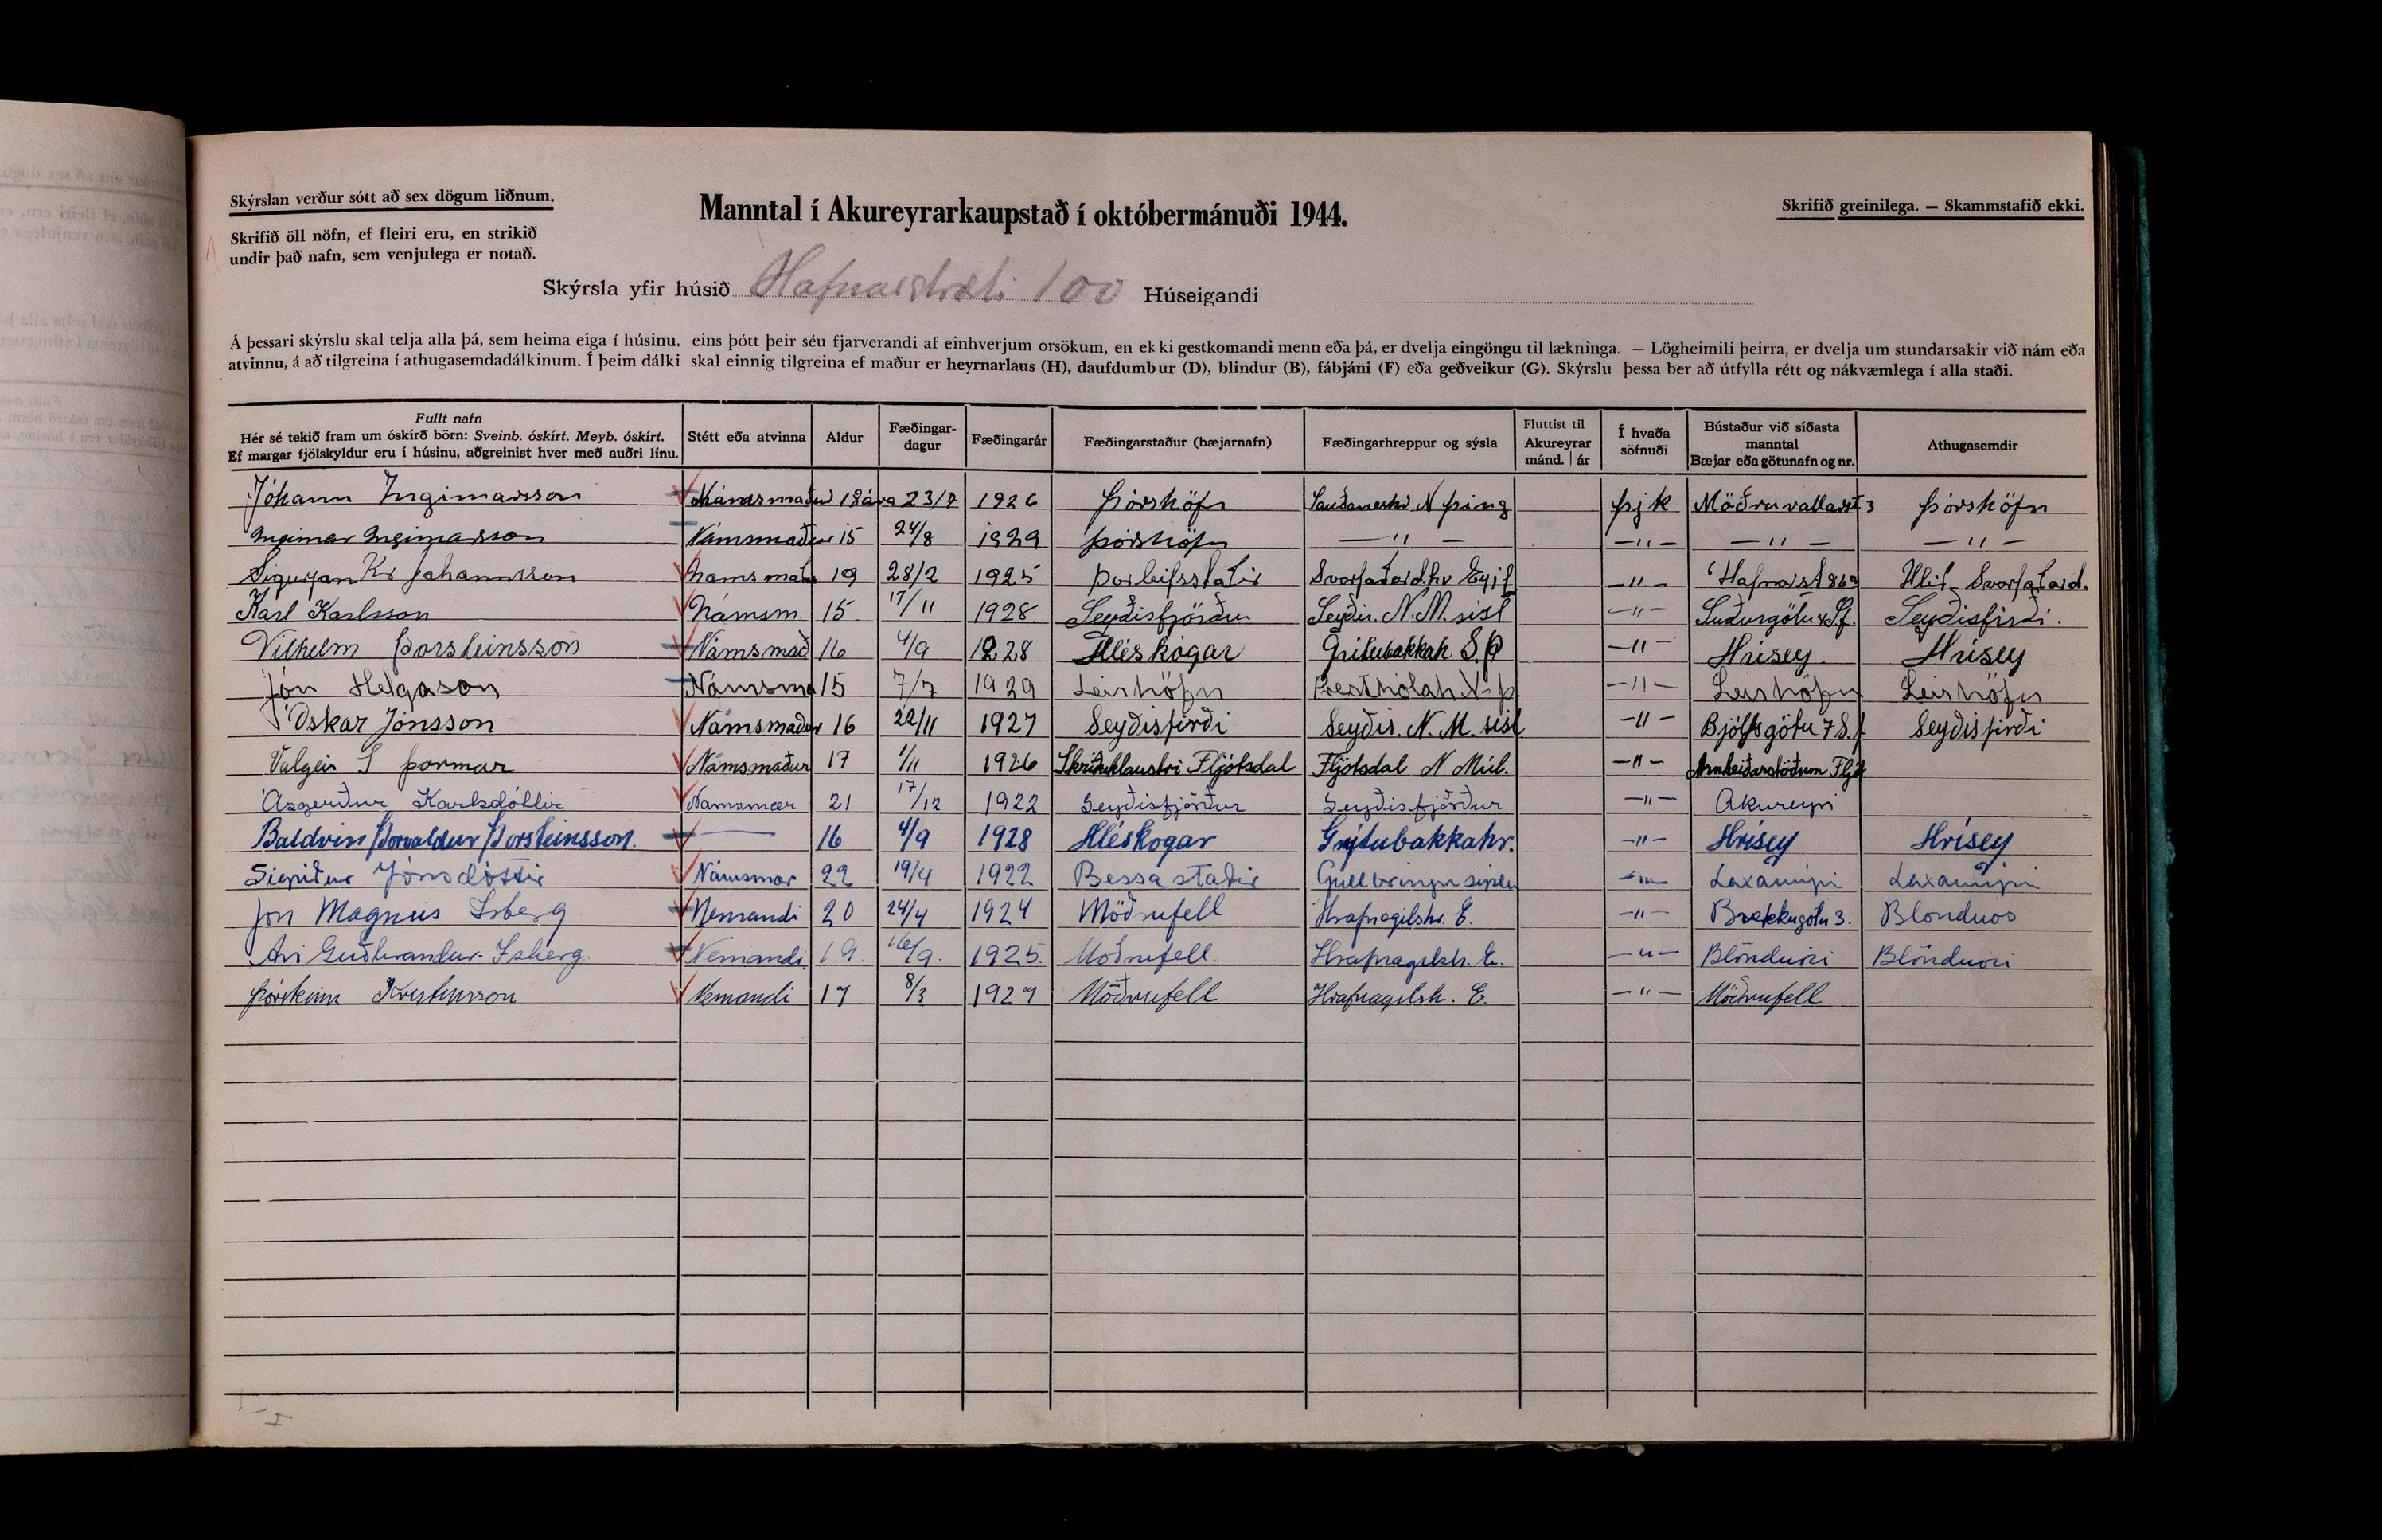 Skýrslan verður sótt að sex dögum liðnum.
Skrifið öll nöfn, ef fleiri eru, en strikið
undir það nafn, sem venjulega er notað.
Manntal í Akureyrarkaupstað í októbermánuði 1944.
Skrifið greinilega. — Skammstafið ekki.
Skýrsla yfir húsið Hafnarstræti 100 Húseigandi
Á þessari skýrslu skal telja alla þá, sem heima eiga í húsinu, eins þótt þeir séu fjarverandi af einhverjum orsökum, en ekki gestkomandi menn eða þá, er dvelja eingöngu til lækninga. — Lögheimili þeirra, er dvelja um stundarsakir við nám eða
atvinnu, á að tilgreina í athugasemdadálkinum. Í þeim dálki skal einnig tilgreina ef maður er heyrnarlaus (H), daufdumbur (D), blindur (B), fábjáni (F) eða geðveikur (G). Skýrslu þessa ber að útfylla rétt og nákvæmlega í alla staði.
Fullt nafn
Hér sé tekið fram um óskírð börn: Sveinb. óskírt. Meyb. óskírt.
Ef margar fjölskyldur eru í húsinu, aðgreinist hver með auðri línu.
Stétt eða atvinna
Aldur
Fæðingar-
dagur
Fæðingarár
Fæðingarstaður (bæjarnafn)
Fæðingarhreppur og sýsla
Fluttist til
Akureyrar
mánd. | ár
Í hvaða
söfnuði
Bústaður við síðasta
manntal
Bæjar eða götunafn og nr.
Athugasemdir
Jóhann Ingimarsson Námsmaður 18 ára 23/7 1926 Þórshöfn Sauðaneshr N Þing þjk Möðruvallast 3 Þórshöfn
Ingimar Ingimarsson Námsmaður 15 24/8 1929 Þórshöfn — " — — " — — " — — " —
Sigurjan Kr Jóhannsson 19 28/2 1925 Þorleifsstaðir Svarfaðard.hr Eyjf — " — Hafnarst Hlíð Svarfaðard.
Karl Karlsson Námsm. 15 17/11 1928 Seyðisfjörður Seyðis. N. M. sísl — " — Suðurgötu Sf. Seyðisfirði.
Vilhelm Þorsteinsson Námsmað 16 4/9 1928 Hléskógar Grítubakkah S.Þ — " — Hrísey Hrísey
Jón Helgason Námsma 15 7/7 1929 Leirhöfn Presthólah N-Þ — " — Leirhöfn Leirhöfn
Óskar Jónsson Námsmaður 16 22/11 1927 Seyðisfirði Seyðis. N. M. sísl — " — Bjólfsgötu 7 S.f Seyðisfirði
Valgeir S Þormar Námsmaður 17 1/11 1926 Skriðuklaustri Fljótsdal Fljótsdal N Múl. — " — Arnheiðarstöðum Fljó
Ásgerður Karlsdóttir Námsmær 21 17/12 1922 Seyðisfjörður Seyðisfjörður — " — Akureyri
Baldvin Þorvaldur Þorsteinsson. — 16 4/9 1928 Hléskogar Grýtubakkahr. — " — Hrísey Hrísey
Sigríður Jónsdóttir Námsmær 22 19/4 1922 Bessastaðir Gullbringu — " — Laxamýri Laxamýri
Jón Magnús Ísberg Nemandi 20 24/4 1924 Möðrufell Hrafnagilshr. E. — " — Brekkugötu 3. Blönduós
Ari Guðbrandur Ísberg. Nemandi 19. 16/9. 1925. Möðrufell. Hrafnagilsh. E. — " — Blönduósi Blönduósi
Þórsteinn Kristinsson Nemandi 17 8/3 1927 Möðrufell Hrafnagilsh. E. — " — Möðrufell